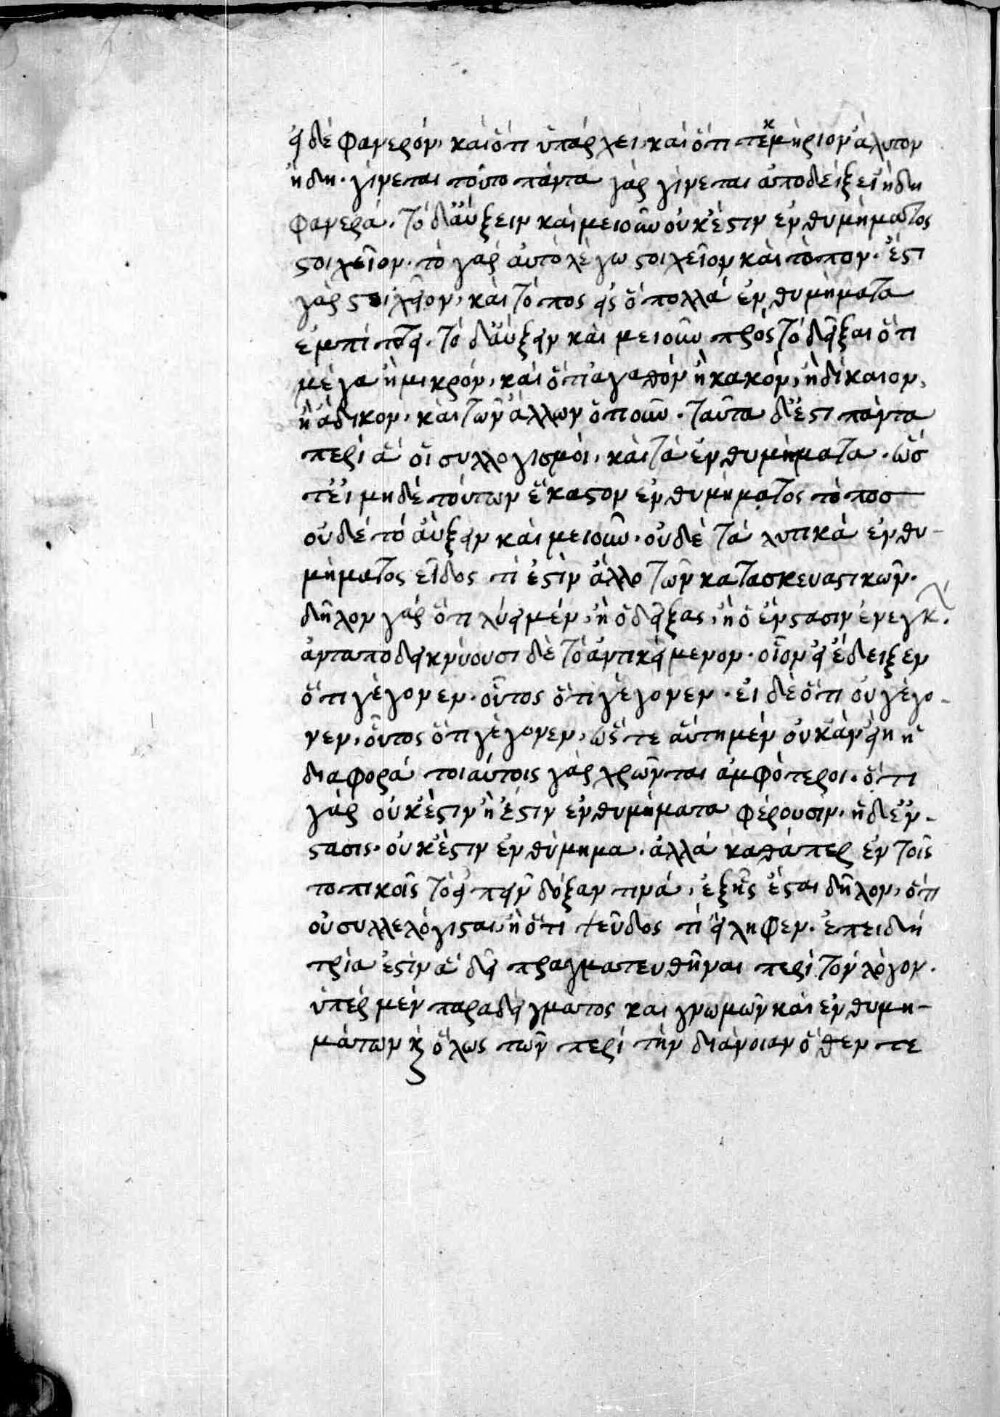 εἰ δὲ φανερόν, καὶ ὅτι ὑπάρχει, καὶ ὅτι τεκμήριον ἄλυτον
ἤδη· γίνεται τοῦτο πάντα γὰρ γίνεται ἀποδείξει ἤδη
φανερά. Τὸ δ' αὔξειν καὶ μειοῦν οὐκ ἔστιν ἐνθυμήματος
στοιχεῖον. τὸ γὰρ αὐτὸ λέγω στοιχεῖον καὶ τόπον. ἔστι
γὰρ στοιχεῖον, καὶ τόπος εἰς ὃ πολλὰ ἐνθυμήματα
ἐμπίπτει. Τὸ δ' αὔξειν καὶ μειοῦν πρὸς τὸ δεῖξαι ὅτι
μέγα ἢ μικρόν, καὶ ὅτι ἀγαθὸν ἢ κακόν, ἢ δίκαιον,
ἢ ἄδικον, καὶ τῶν ἄλλων ὁποιοῦν. ταῦτα δ' ἐστὶ πάντα
περὶ ἃ οἱ συλλογισμοί, καὶ τὰ ἐνθυμήματα. ὥσ
τ' εἰ μηδὲ τούτων ἕκαστον ἐνθυμήματος τόπος
οὐδὲ τὸ αὔξειν καὶ μειοῦν. οὐδὲ τὰ λυτικὰ ἐνθυ-
μήματος εἶδος τί ἐστὶν ἄλλο τῶν κατασκευαστικῶν.
δῆλον γὰρ ὅτι λύει μέν, ἢ ὁ δείξας, ἢ ὁ ἔνστασιν ἐνεγκ.
ἀνταποδεικνύουσι δὲ τὸ ἀντικείμενον. οἷον εἰ ἔδειξεν
ὅτι γέγονεν. οὗτος ὅτι γέγονεν. εἰ δὲ ὅτι οὐ γέγο-
νεν, οὗτος ὅτι γέγονεν, ὥστε αὕτη μὲν οὐκ ἂν εἴη ἡ
διαφορά τοι αὐτοῖς γὰρ χρῶνται ἀμφότεροι. ὅτι
γὰρ οὐκ ἔστιν ἢ ἔστιν ἐνθυμήματα φέρουσιν. ἡ δ' ἔν-
στασις. οὐκ ἔστιν ἐνθύμημα. ἀλλὰ καθάπερ ἐν τοῖς
τοπικοῖς τὸ εἰπεῖν δόξαν τινά, ἐξ ἧς ἔσται δῆλον, ὅτι
οὐ συλλελόγισται, ἢ ὅτι ψεῦδος τί εἴληφεν. ἐπειδὴ
τρία ἐστὶν ἃ δεῖ πραγματευθῆναι περὶ τὸν λόγον.
ὑπὲρ μὲν παραδείγματος καὶ γνωμῶν καὶ ἐνθυμη-
μάτων καὶ ὅλως τῶν περὶ τὴν διάνοιαν ὅθεν τε